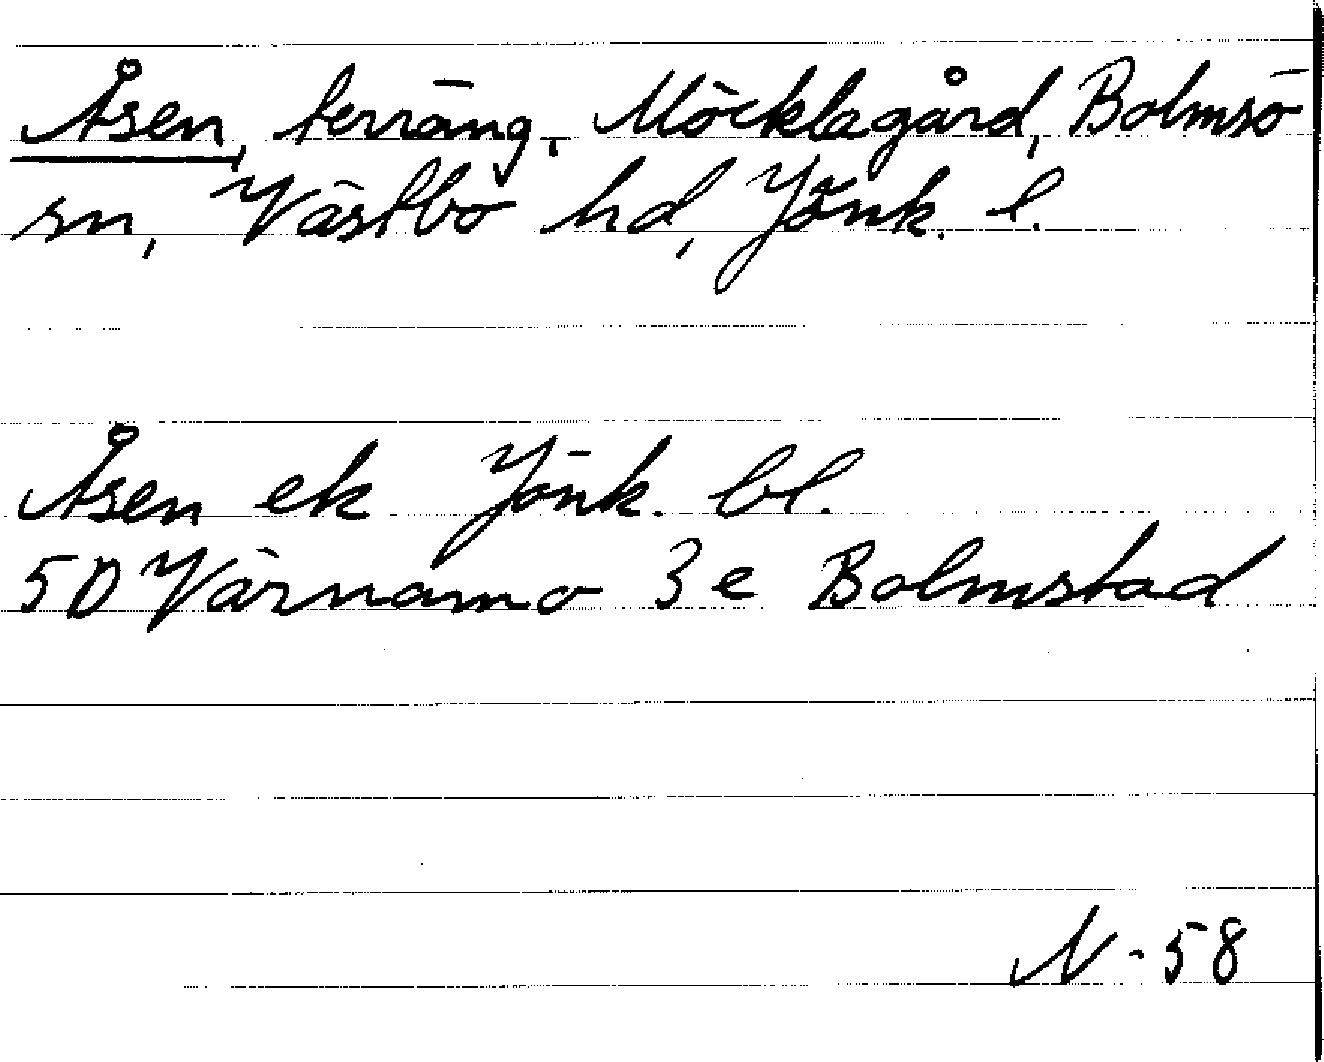 Åsen, terräng, Möcklagård, Bolmsö
sn, Västbo hd, Jönk. l.
Åsen ek Jönk. bl.
5D Värnamo 3e Bolmstad
N-58